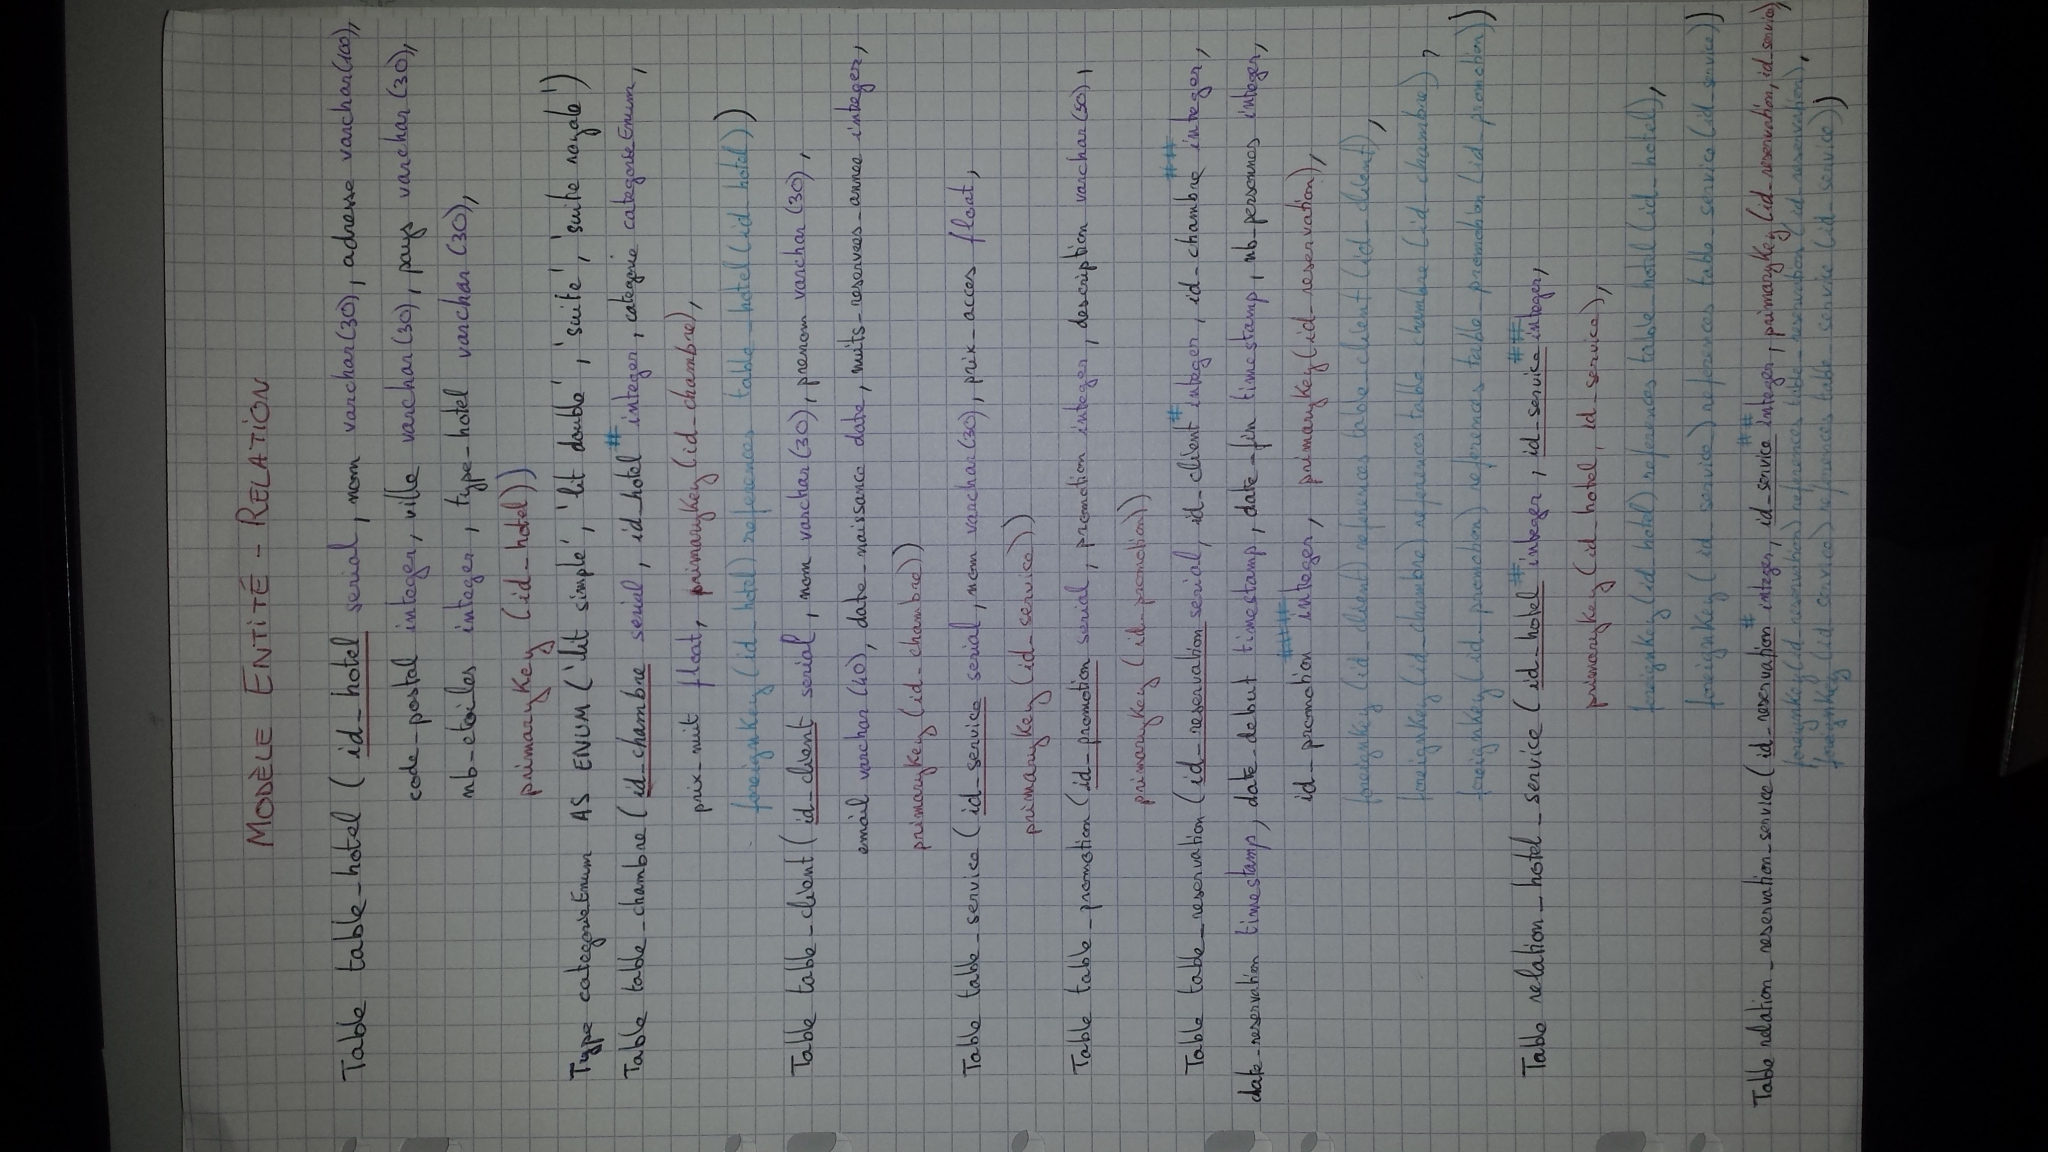 MODÈLE ENTITÉ - RELATION
Table table_hotel ( id_hotel serial, nom varchar(30), adresse varchar(100),
code_postal integer, ville varchar(30), pays varchar(30),
nb_etoiles integer, type_hotel varchar(30),
primaryKey (id_hotel))
Type categorieEnum AS ENUM ('lit simple', 'lit double', 'suite', 'suite royale')
Table table_chambre (id_chambre serial, id_hotel# integer, categorie categorieEnum,
prix_nuit float, primaryKey(id_chambre),
foreignKey(id_hotel) references table_hotel(id_hotel))
Table table_client (id_client serial, nom varchar(30), prenom varchar(30),
email varchar(40), date_naissance date, nuits_reservees_annee integer,
primaryKey(id_chambre))
Table table_service (id_service serial, nom varchar(30), prix_acces float,
primaryKey(id_service))
Table table_promotion (id_promotion serial, promotion integer, description varchar(50),
primaryKey(id_promotion))
Table table_reservation (id_reservation serial, id_client# integer, id_chambre## integer,
date_reservation timestamp, date_debut timestamp, date_fin timestamp, nb_personnes integer,
id_promotion### integer, primaryKey(id_reservation),
foreignKey(id_client) references table_client(id_client),
foreignKey(id_chambre) references table_chambre(id_chambre),
foreignKey(id_promotion) references table_promotion(id_promotion))
Table relation_hotel_service (id_hotel# integer, id_service## integer,
primaryKey(id_hotel, id_service),
foreignKey(id_hotel) references table_hotel(id_hotel),
foreignKey(id_service) references table_service(id_service))
Table relation_reservation_service(id_reservation# integer, id_service## integer, primaryKey(id_reservation, id_service),
foreignKey(id_reservation) references table_reservation(id_reservation),
foreignKey(id_service) references table_service(id_service))